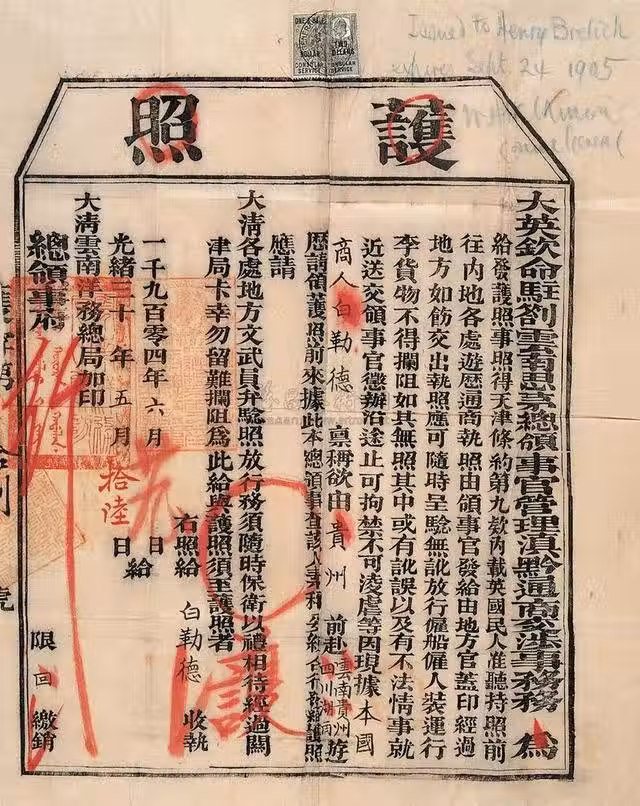 Issued to Henry Brelich
expires Sept. 24 1905
ONE DOLLAR
CONSULAR SERVICE
TWO DOLLARS
CONSULAR SERVICE
護照
大英欽命駐劄雲南思茅總領事官管理滇黔通商交涉事務 為
給發護照事照得天津條約第九款內載英國民人准聽持照前
往內地各處遊歷通商執照由領事官發給由地方官蓋印經過
地方如飭交出執照應可隨時呈驗無訛放行僱船僱人裝運行
李貨物不得攔阻如其無照其中或有訛誤以及有不法情事就
近送交領事官懲辦沿途止可拘禁不可凌虐等因現據本國
商人白勒德 稟稱欲由貴州 前赴雲南貴州四川湖南遊
歷請領護照前來據此本總領事查該人 護照
應請
大清各處地方文武員弁驗照放行務須隨時保衛以禮相待經過關
津局卡幸勿留難攔阻為此給與護照須至護照者
右照給 白勒德 收執
一千九百零四年六月 日
光緒三十年五月拾陸日給
大清雲南洋務總局加印
總領事府
限 回 繳銷
號